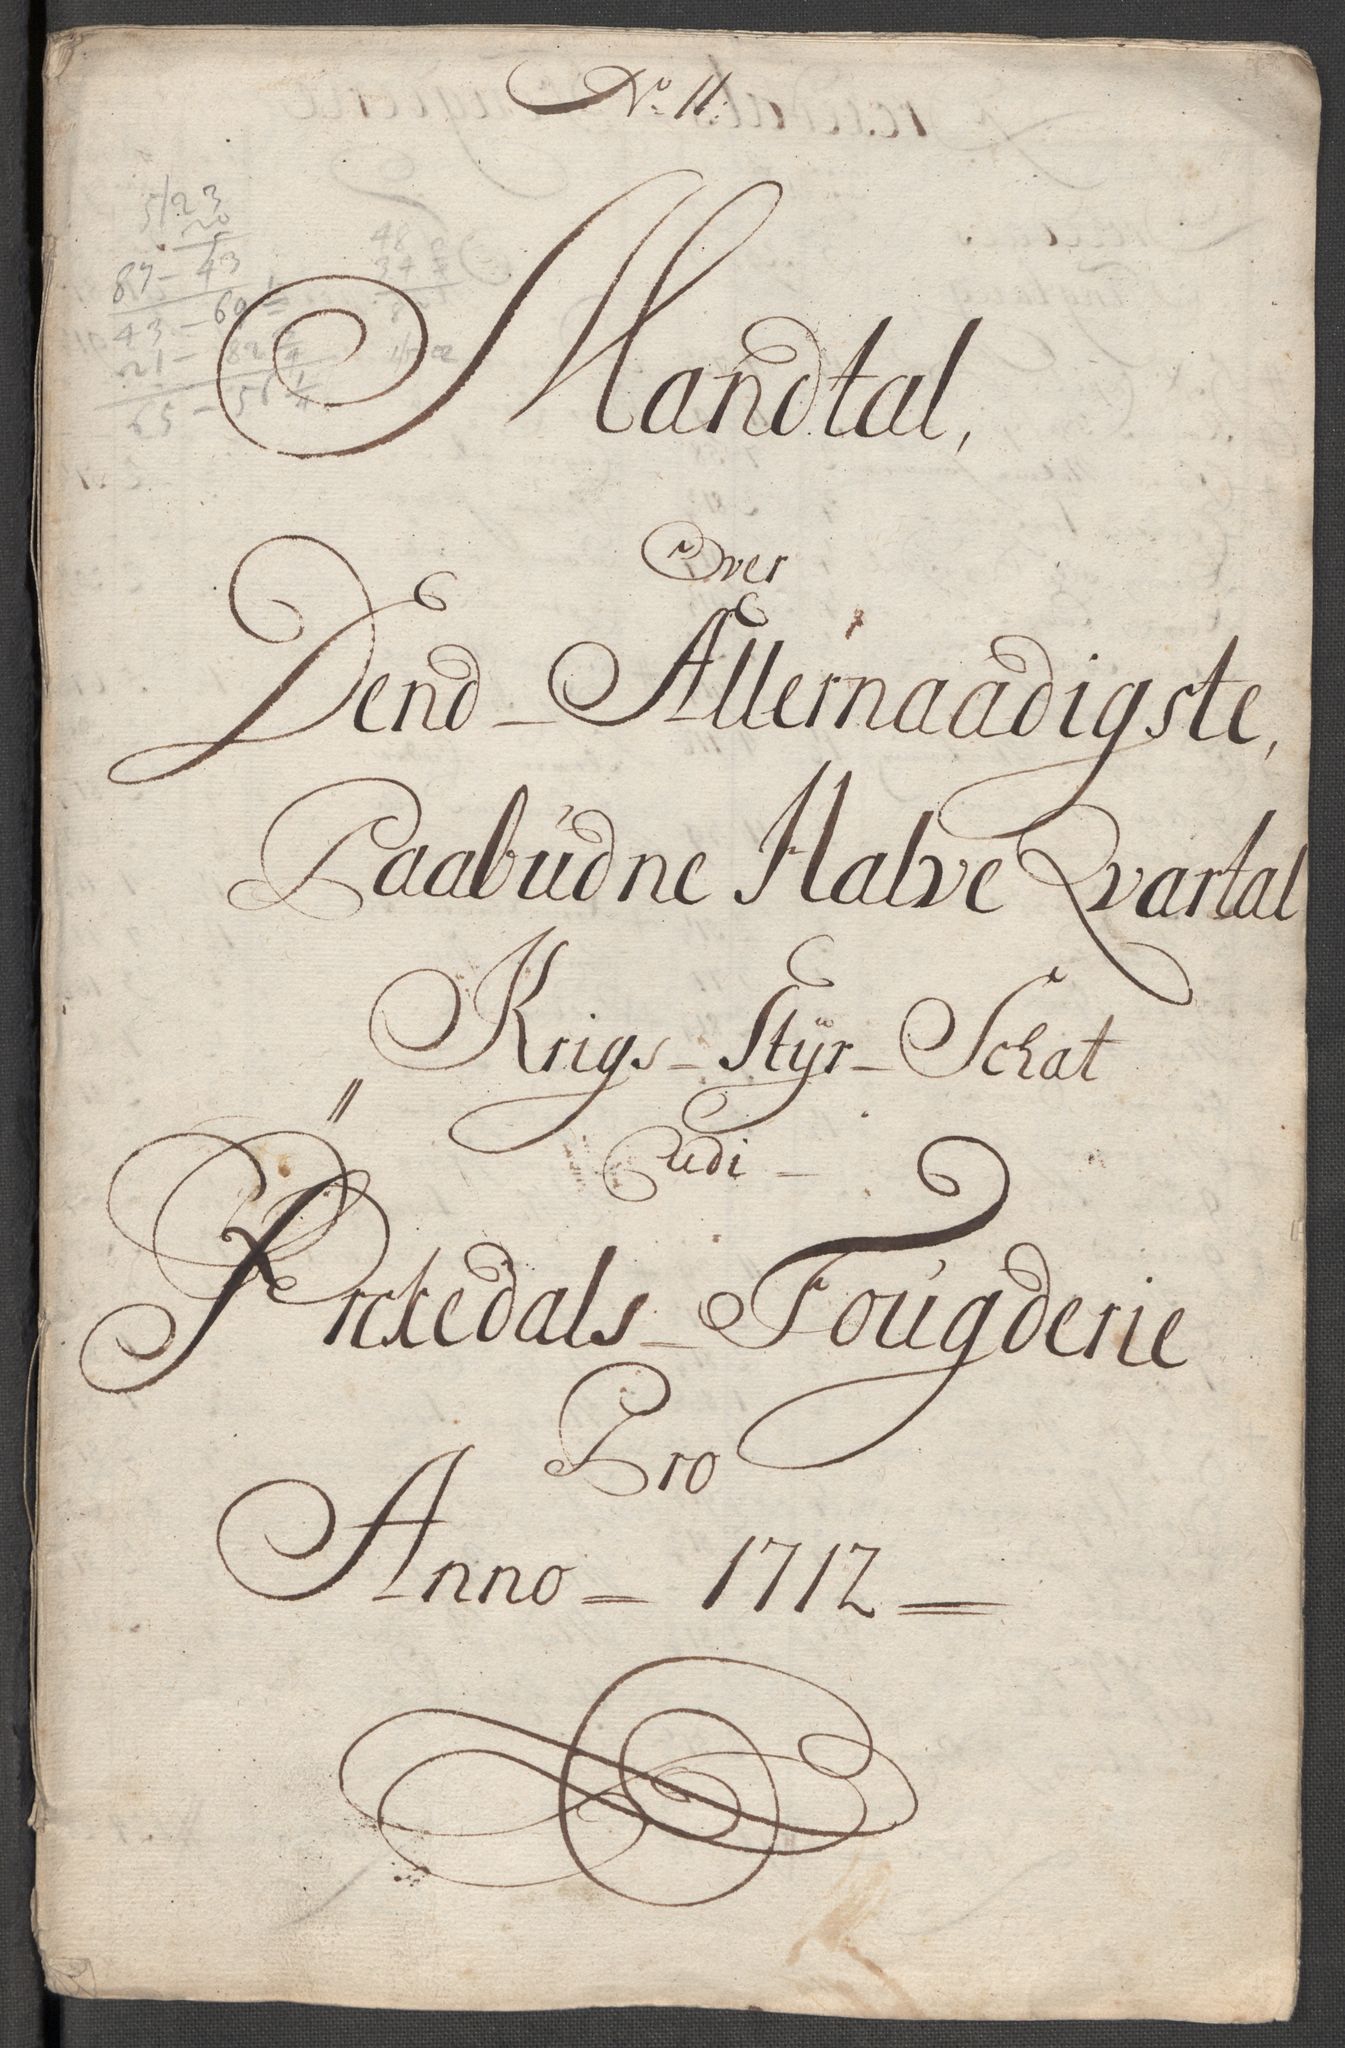 No 11.
5123
20
87 - 43
43 - 69 1/2
21 - 82 3/4
65 - 56 1/4
48
34
Mandtal,
Over
Dend - Allernaadigste,
Paabúdne Halve Qvartal
Krigs - Stÿr - Schat
udi -
Orckedals - Foúgderie
Pro
Anno = 1712 =